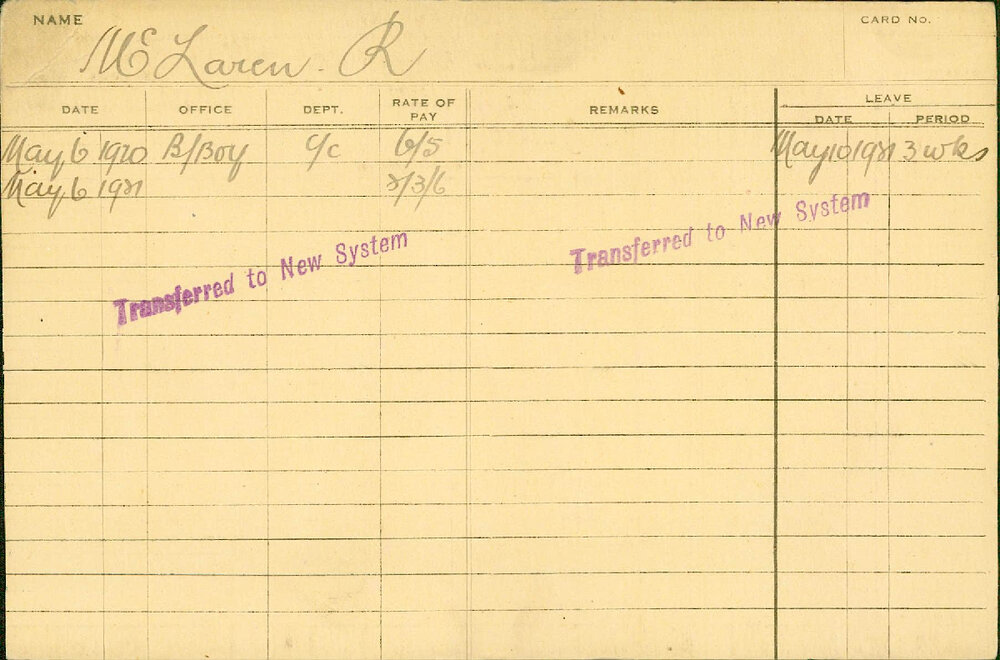 NAME
CARD No.
McLaren. R
DATE OFFICE DEPT. RATE OF PAY REMARKS LEAVE
DATE PERIOD
May 6 1920 B/Boy C/c 6/5 May 10 1921 3 wks
May 6 1921 /3/6
Transferred to New System
Transferred to New System